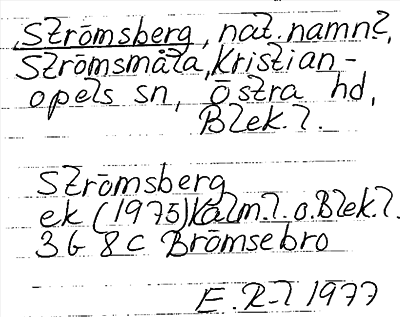 Strömsberg, nat.namn?,
Strömsmåla, Kristian-
opels sn, Östra hd,
Blek.l.
Strömsberg
ek (1975) Kalm.l. o. Blek.l.
3G 8c Brömsebro
E. R-l 1977